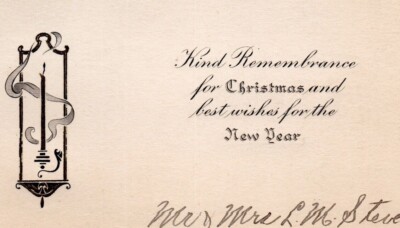 Kind Remembrance
for Christmas and
best wishes for the
New Year
Mr & Mrs L. M. Steve